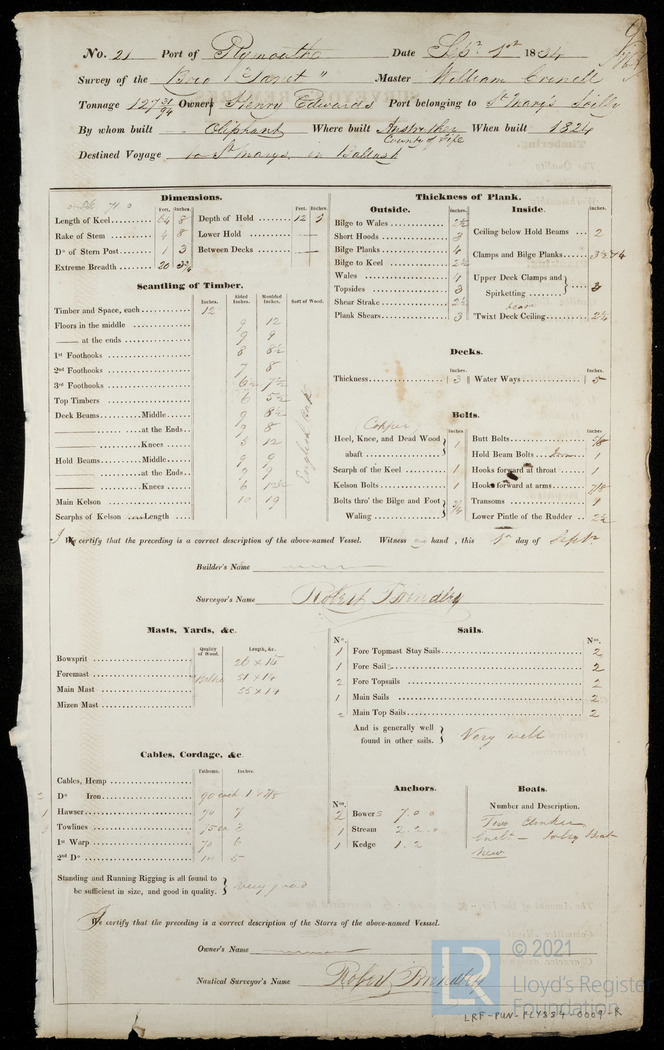 No. 21 Port of Plymouth Date Sepr 1st 1834
Survey of the Brig "Janet" Master William
Tonnage 127 31/94 Owner Henry Edwards Port belonging to St Mary's Scilly
By whom built Oliphant Where built Anstruther County of Fife When built 1824
Destined Voyage to St Marys in Ballast
Dimensions.
Feet. Inches.
Length of Keel 64 8
Rake of Stem 4 8
Do of Stern Post 1 3
Extreme Breadth 20 3¾
Feet. Inches.
Depth of Hold 12 3
Lower Hold
Between Decks
Scantling of Timber.
Inches. Sided Inches. Moulded Inches. Sort of Wood.
Timber and Space, each 12
Floors in the middle 9 12
at the ends 9 9
1st Foothooks 8 8½
2nd Foothooks 7 8
3rd Foothooks 6½ 7½
Top Timbers 6 5½
Deck Beams Middle 9 8½
at the Ends 9 8
Knees 5 12
Hold Beams Middle 9 9
at the Ends 9 9
Knees 6
Main Kelson 10 19
Scarphs of Kelson Length
English Oak
Thickness of Plank.
Outside. Inches.
Bilge to Wales 2½
Short Hoods 3
Bilge Planks 4
Bilge to Keel 2½
Wales 4
Topsides 3
Shear Strake 2½
Plank Shears 3
Inside. Inches.
Ceiling below Hold Beams 2
Clamps and Bilge Planks 3½ & 4
Upper Deck Clamps and
Spirketting 3
Twixt Deck Ceiling 2¼
Decks.
Inches. Inches.
Thickness 3 Water Ways 5
Bolts.
Copper
Inches. Inches
Heel, Knee, and Dead Wood
abaft 1
Scarph of the Keel 1
Kelson Bolts 1
Bolts thro' the Bilge and Foot
Waling ¾
Butt Bolts 5/8
Hold Beam Bolts Iron 1
Hooks forward at throat 1
Hooks forward at arms 7/8
Transoms 1
Lower Pintle of the Rudder 2½
I certify that the preceding is a correct description of the above-named Vessel. Witness my hand, this 1st day of Septr
Builder's Name
Surveyor's Name Robert Brindley
Masts, Yards, &c.
Quality of Wood. Length, &c.
Bowsprit 26 × 15
Foremast 51 × 14
Main Mast 55 × 14
Mizen Mast
Sails.
No. Nos.
1 Fore Topmast Stay Sails 2
1 Fore Sails 2
2 Fore Topsails 2
1 Main Sails 2
2 Main Top Sails 2
And is generally well
found in other sails. Very well
Cables, Cordage, &c.
Fathoms. Inches.
Cables, Hemp
2 Do Iron 90 each
1 Hawser 90 7
Towlines
1st Warp 70 6
2nd Do 5
Standing and Running Rigging is all found to
be sufficient in size, and good in quality. very good
Anchors.
Nos.
2 Bowers 7.0.0
1 Stream 2.2.0
1 Kedge 1.2
Boats.
Number and Description.
Two Clinker
Built - Jolly Boat
New
I certify that the preceding is a correct description of the Stores of the above-named Vesssel.
Owner's Name
Nautical Surveyor's Name Robert Brindley
LR
© 2021
Lloyd's Register
Foundation
LRF-PUN-PLY834-0009-R